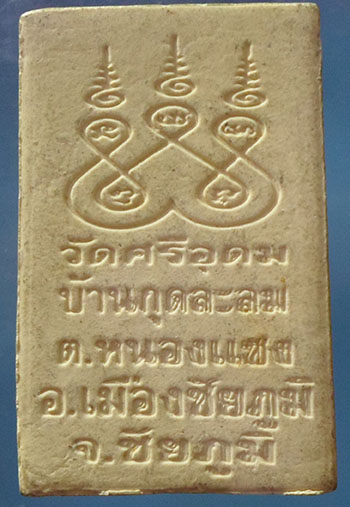 วัดศรีอุดม
บ้านกุดละลม
ต.หนองแซง
อ.เมืองชัยภูมิ
จ.ชัยภูมิ